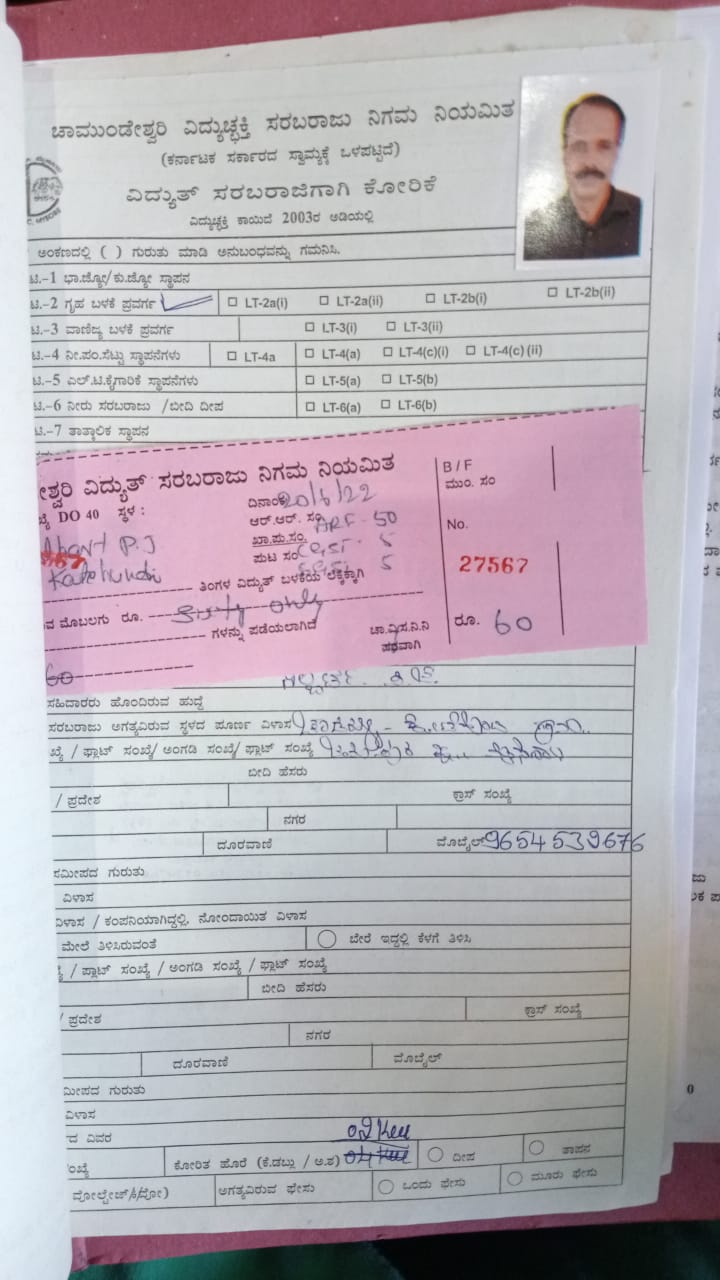 ಚಾಮುಂಡೇಶ್ವರಿ ವಿದ್ಯುಚ್ಛಕ್ತಿ ಸರಬರಾಜು ನಿಗಮ ನಿಯಮಿತ
(ಕರ್ನಾಟಕ ಸರ್ಕಾರದ ಸ್ವಾಮ್ಯಕ್ಕೆ ಒಳಪಟ್ಟಿದೆ)
ವಿದ್ಯುತ್ ಸರಬರಾಜಿಗಾಗಿ ಕೋರಿಕೆ
ವಿದ್ಯುಚ್ಛಕ್ತಿ ಕಾಯಿದೆ 2003ರ ಅಡಿಯಲ್ಲಿ
ಅಂಕಣದಲ್ಲಿ ( ) ಗುರುತು ಮಾಡಿ ಅನುಬಂಧವನ್ನು ಗಮನಿಸಿ.
ಟಿ.-1 ಭಾ.ಜ್ಯೋ/ಕು.ಜ್ಯೋ ಸ್ಥಾಪನ
ಟಿ.-2 ಗೃಹ ಬಳಕೆ ಪ್ರವರ್ಗ LT-2a(i) LT-2a(ii) LT-2b(i) LT-2b(ii)
ಟಿ.-3 ವಾಣಿಜ್ಯ ಬಳಕೆ ಪ್ರವರ್ಗ LT-3(i) LT-3(ii)
ಟಿ.-4 ನೀ.ಪಂ.ಸೆಟ್ಟು ಸ್ಥಾಪನೆಗಳು LT-4a LT-4(a) LT-4(c)(i) LT-4(c) (ii)
ಟಿ.-5 ಎಲ್.ಟಿ.ಕೈಗಾರಿಕೆ ಸ್ಥಾಪನೆಗಳು LT-5(a) LT-5(b)
ಟಿ.-6 ನೀರು ಸರಬರಾಜು /ಬೀದಿ ದೀಪ LT-6(a) LT-6(b)
ಟಿ.-7 ತಾತ್ಕಾಲಿಕ ಸ್ಥಾಪನ
ಶ್ವರಿ ವಿದ್ಯುತ್ ಸರಬರಾಜು ನಿಗಮ ನಿಯಮಿತ B / F
ಮುಂ. ಸಂ
DO 40 ಸ್ಥಳ : ದಿನಾಂಕ 20/6/22
ಆರ್.ಆರ್. ಸಂ ARF-50 No.
ಖಾ.ಪು.ಸಂ. 5
ಪುಟ ಸಂ 5 27567
ತಿಂಗಳ ವಿದ್ಯುತ್ ಬಳಕೆಯ ಲೆಕ್ಕಕ್ಕಾಗಿ
ಮೊಬಲಗು ರೂ. Sixty only ರೂ. 60
ಗಳನ್ನು ಪಡೆಯಲಾಗಿದೆ ಚಾ.ವಿ.ಸ.ನಿ.ನಿ
ಪರವಾಗಿ
60
ಸಹಿದಾರರು ಹೊಂದಿರುವ ಹುದ್ದೆ
ಸರಬರಾಜು ಅಗತ್ಯವಿರುವ ಸ್ಥಳದ ಪೂರ್ಣ ವಿಳಾಸ
/ ಫ್ಲಾಟ್ ಸಂಖ್ಯೆ/ ಅಂಗಡಿ ಸಂಖ್ಯೆ/ ಫ್ಲಾಟ್ ಸಂಖ್ಯೆ
ಬೀದಿ ಹೆಸರು
/ ಪ್ರದೇಶ ಕ್ರಾಸ್ ಸಂಖ್ಯೆ
ನಗರ
ದೂರವಾಣಿ ಮೊಬೈಲ್ 9654539676
ಸಮೀಪದ ಗುರುತು
ವಿಳಾಸ
ವಿಳಾಸ / ಕಂಪನಿಯಾಗಿದ್ದಲ್ಲಿ, ನೋಂದಾಯಿತ ವಿಳಾಸ
ಮೇಲೆ ತಿಳಿಸಿರುವಂತೆ ಬೇರೆ ಇದ್ದಲ್ಲಿ ಕೆಳಗೆ ತಿಳಿಸಿ
/ ಪ್ಲಾಟ್ ಸಂಖ್ಯೆ / ಅಂಗಡಿ ಸಂಖ್ಯೆ / ಫ್ಲಾಟ್ ಸಂಖ್ಯೆ
ಬೀದಿ ಹೆಸರು
/ ಪ್ರದೇಶ ಕ್ರಾಸ್ ಸಂಖ್ಯೆ
ನಗರ
ದೂರವಾಣಿ ಮೊಬೈಲ್
ಮೀಪದ ಗುರುತು
ವಿಳಾಸ
ದ ವಿವರ
ಕೋರಿತ ಹೊರೆ (ಕೆ.ಡಬ್ಲು / ಅ.ಶ) ದೀಪ ತಾಪನ
ಅಗತ್ಯವಿರುವ ಫೇಸು ಒಂದು ಫೇಸು ಮೂರು ಫೇಸು